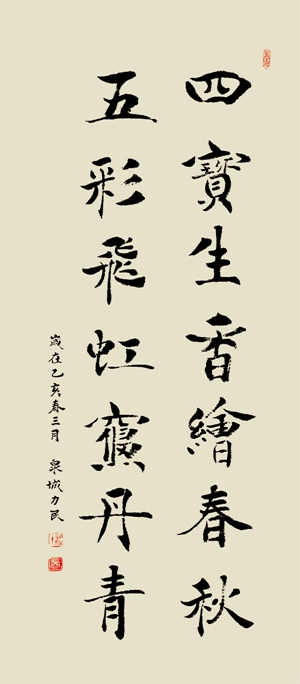 四寶生香繪春秋
五彩飛虹寫丹青
歲在乙亥春三月 泉城力民